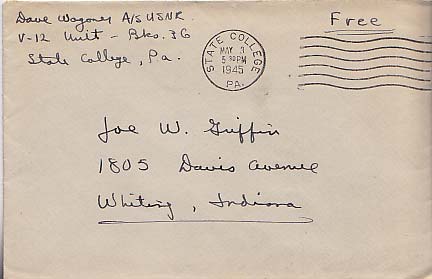 Dave Wagoner A/S USNR.
V-12 Unit - Bks. 36
State College, Pa.
STATE COLLEGE
MAY 3
5 30 PM
1945
PA.
Free
Joe W. Griffin
1805 Davis Avenue
Whiting, Indiana